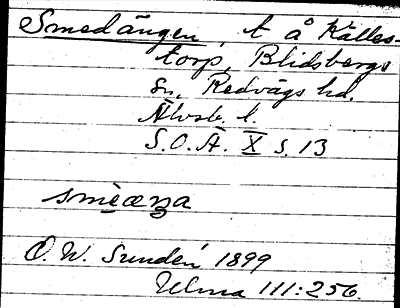 Smedängen, t å Källes-
torp, Blidsbergs
sn, Redvägs hd.
Älvsb. l.
S.O.Ä. X s. 13
smèæŋa
O. W. Sundén 1899
Ulma 111:256.